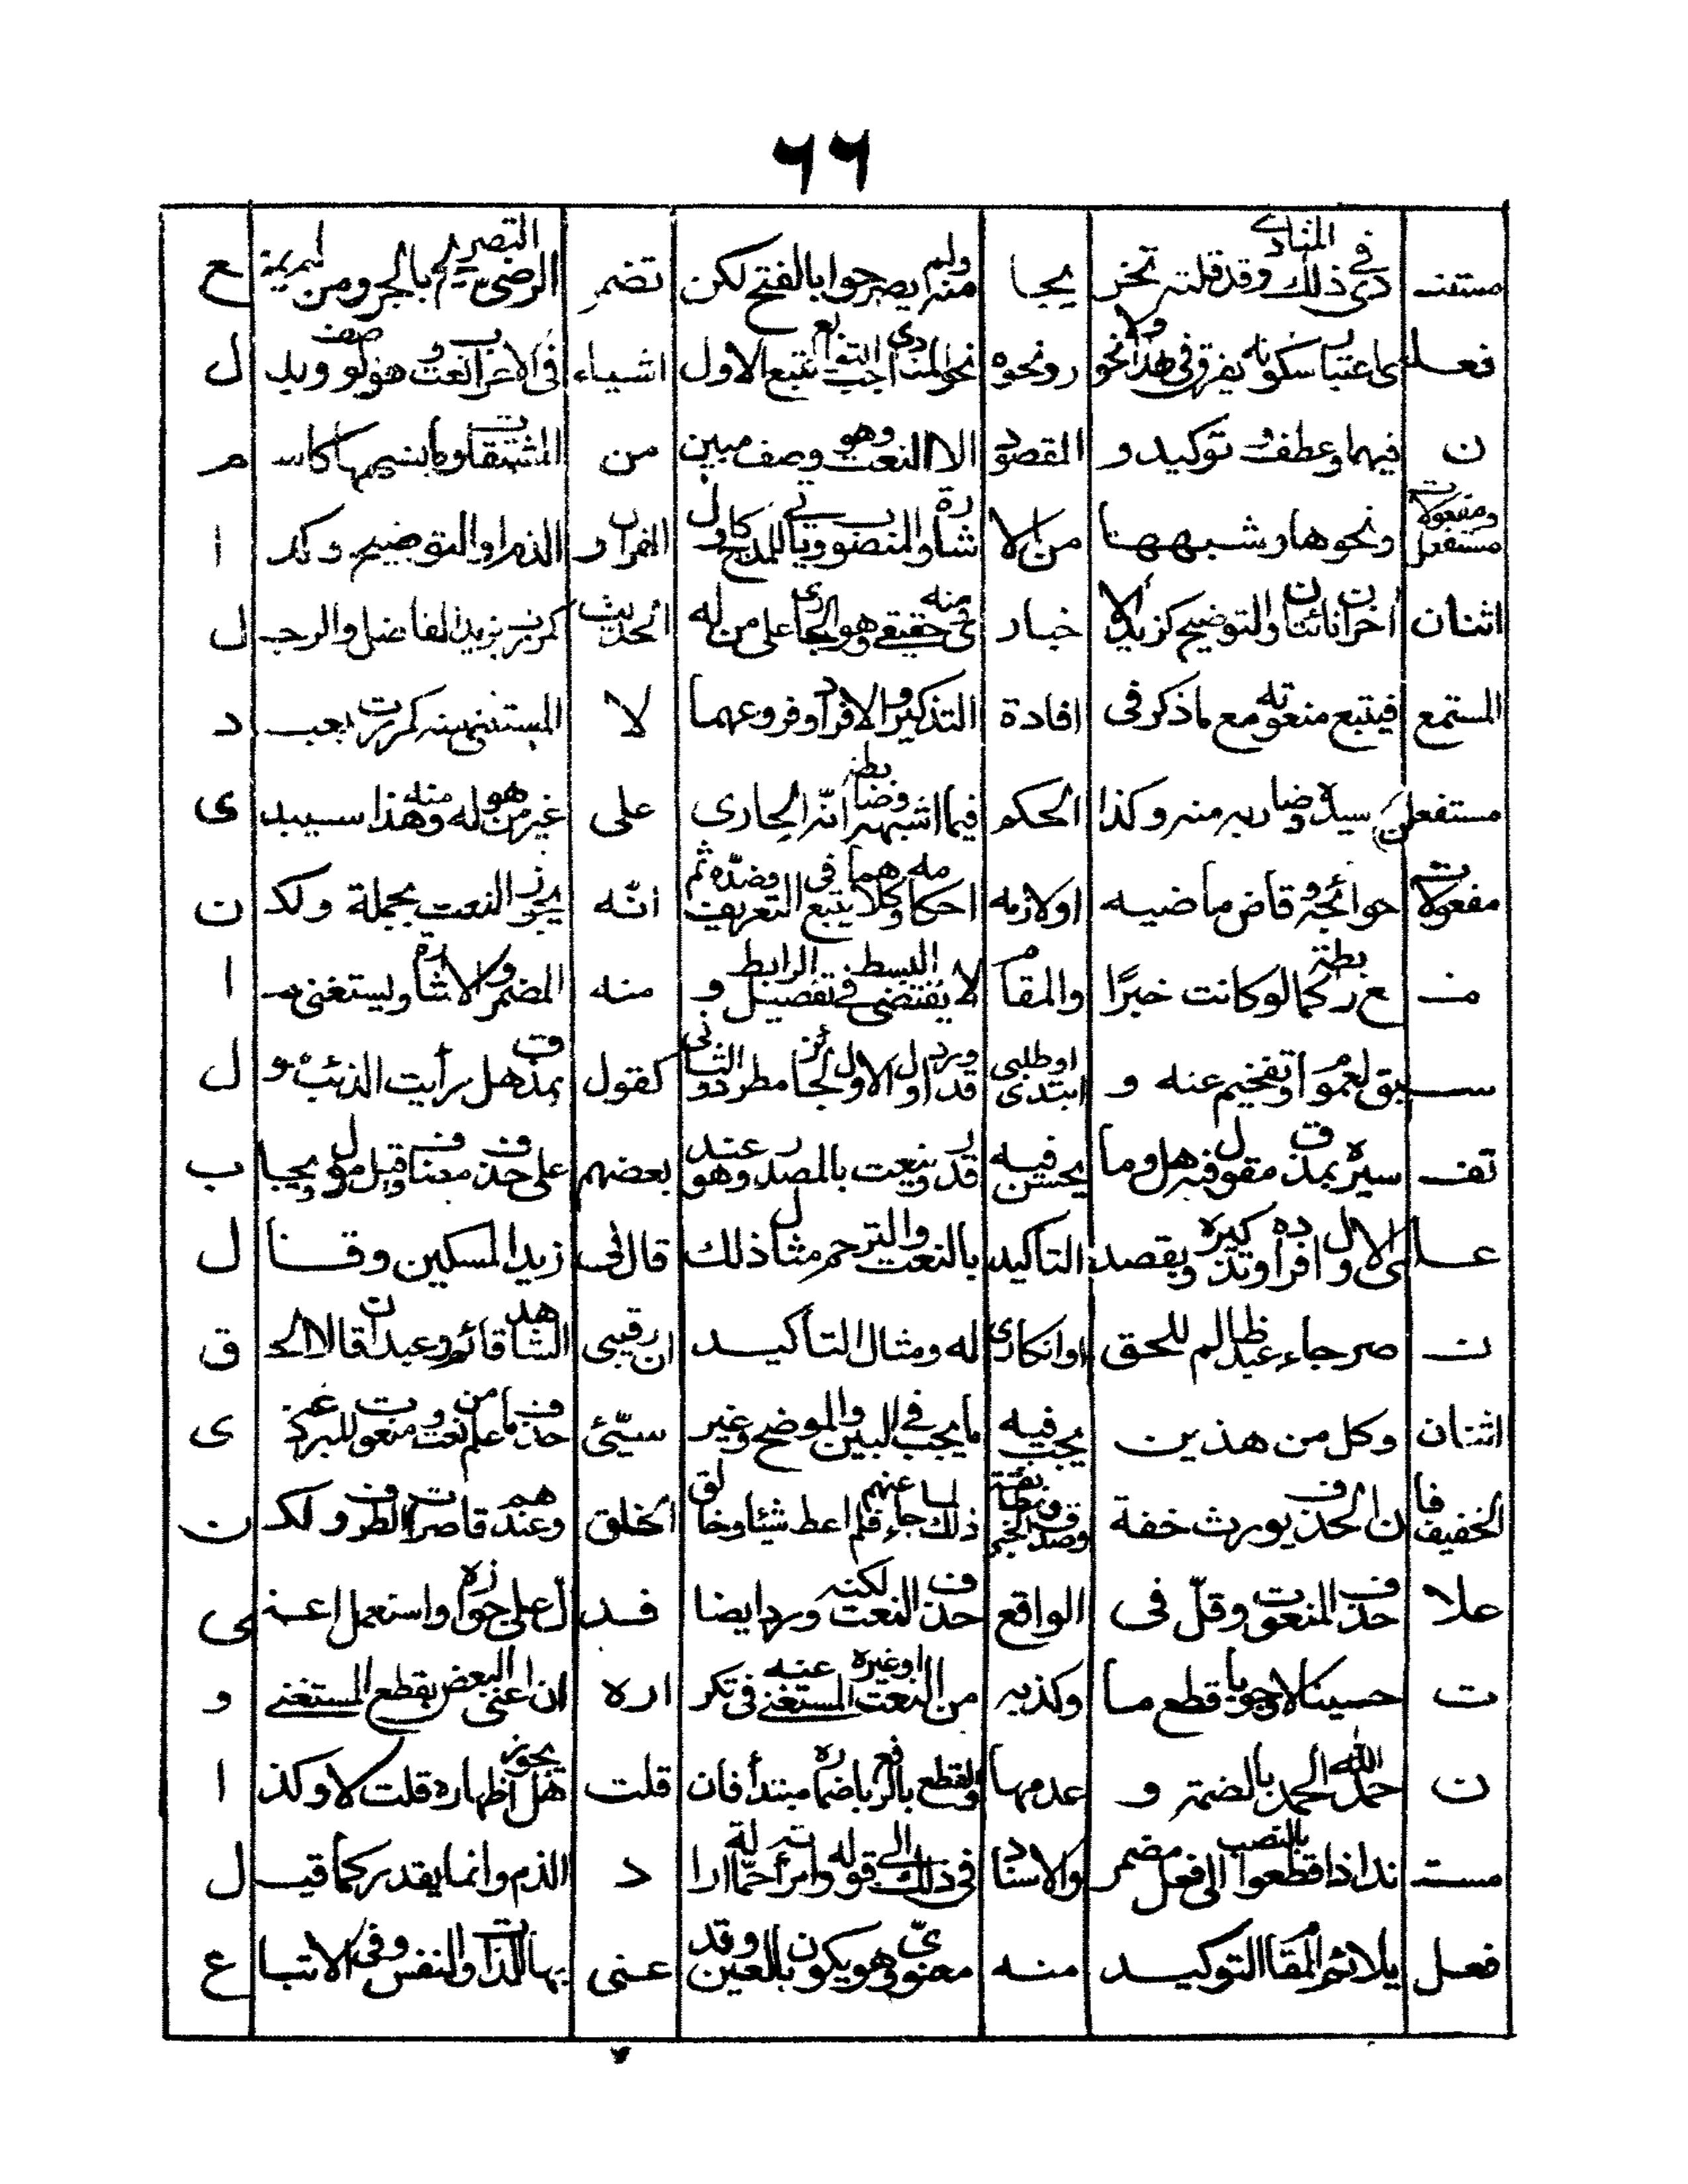 ٦٦
مستفـ دى فى ذلك المنادى وقد قلته تخر يجا منه ولم يصرحوا بالفتح لكن تضم الرضى التصريح بالجر ومن ع
فعلـ ى اعتبار سكونه ولا يفرق فى هذا نحو ر ونحوه نحو المنادى اجب التوابع تتبع الاول اشياء فى الاعراب نعت وهو لو وبد ل
ن فيهما وعطف وتوكيد و المقصود الا النعت وهو وصف مبين من المشتقات وما بنسبها كاسـ م
مستفعل ومفعولات ونحوها وشبهها من الا شارة والمنصوب ويأتى للمدح كاول القرآن و الذم او التوضيح وكد ا
اثنان اخران اتئنا والتوضيح كزيد الا خبار فى منه حقيقى وهو الجارى على من له الحديث كمررت بزيد الفاضل والرجـ ل
المستمع فيتبع منعوته مع ماذكر فى افادة التذكير والافراد وفروعهما لا المستثنى منه كمررت بعبـ د
مستفعلن سيده وضاربه منه وكذا الحكم فيما اشبهه وضابطه انه الجارى على غير من هو له ومنه هذا سيبد ى
مفعولات حوائجه وقاض ماضيه اولازمه احكامه وكلاهما يتبع فى التعريف وضده ثم انه يجوز النعت بجملة ولكـ ن
منـ ع رابطة كما لو كانت خبرا والمقام لا يقتضى البسط فى تفصيل الرابط و منه المضمر والاشارة ويستغنى بـ ا
سـ بق لعموم او تفخيم عنه و ابتدى اوطلبى قد ورد اول الاول جائز مطرد والثانى كقول بمذق هل رأيت الذئب و ل
تفـ سيره بمذق مقول فيه هل وما يحسن فيه قد ينعت بالمصدر وهو عند بعضهم على حذف مضاف وقيل مؤول ويجا ب
عـلـ ى الاول افراده وتذكيره ويقصد التأكيد بالنعت والترحم مثال ذلك قال فى زيد المسكين وقـا ل
ن صر جاء عبد ظالم للحق او انكارى له ومثال التأكيـد ان رقيبى الشاهد قائم وعبدان قالا الحـ ق
اثنان وكل من هذين يجب فيه ما يجب فى المبين والموضح وغير سيئ حذف ما علم من نعت ومنعوت ى
الخفيف فا ن الحذف يورث خفة ذلك لما جاء عنهم فلم اعط شيئا وخالق الخلق وعندهم قاصرات الطرف ولكـ ن
علا حذف المنعوت وقل فى الواقع حذف النعت لكنه ورد ايضا فـد ل على جوازه واستعمل اعنـ ى
ت حسينا لا وجوبا قطع ما وكذبه من النعت اوغيره المستغنى عنه فى تكر اره ان اعنى البعض بقطع المستغنى و
ن حمد الله الحمد بالضمة و عدمها والقطع بالرفع باضماره مبتدأ فان قلت هل يجوز اظهاره قلت لا وكذ ا
مستـ ندا اذا قطعوا بالنصب الى فعل مضمر والاسناد فى ذلك الى قوله وامرأته حمالة ارا د الذم وانما يقدر كما قيـ ل
فعل يلائم المقام التوكيـد منه معنوى وهو يكون بالعين وقد عنى بها الذات والنفس وفى الاتبا ع